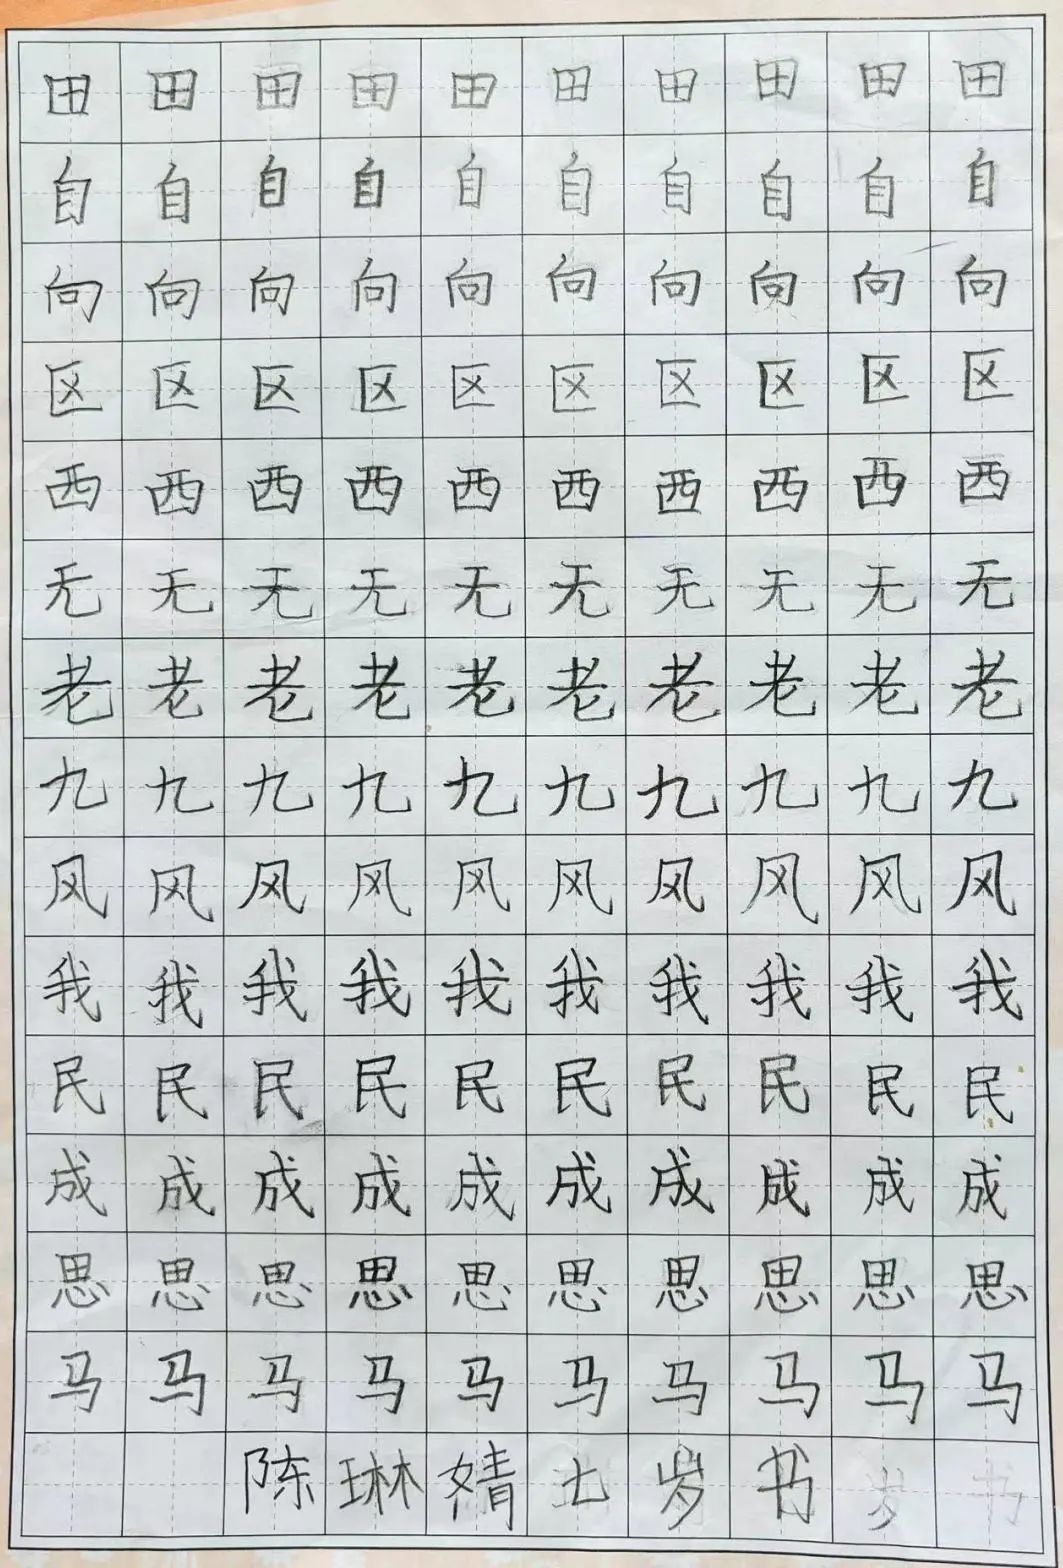 田田田田田田田田田田
自自自自自自自自自自
向向向向向向向向向向
区区区区区区区区区区
西西西西西西西西西西
无无无无无无无无无无
老老老老老老老老老老
九九九九九九九九九九
风风风风风风风风风风
我我我我我我我我我我
民民民民民民民民民民
成成成成成成成成成成
思思思思思思思思思思
马马马马马马马马马马
陈琳婧七岁书岁书